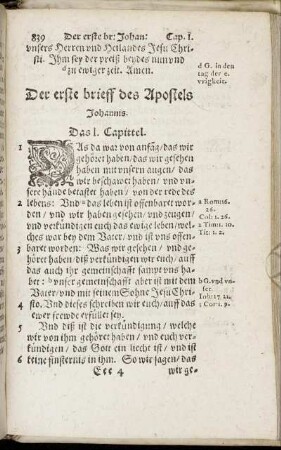 839 Der erste br: Johan: Cap. I.
vnsers Herren vnd Heilandes Jesu Chri-
sti. Ihm sey der preiß beydes nun vnd
d zu ewiger zeit. Amen.
d G. in den
tag der e-
wigkeit.
Der erste brieff des Apostels
Johannis.
Das I. Capittel.
1 DAs da war von anfãg/das wir
gehöret haben/das wir gesehen
haben mit vnsern augen/das
wir beschawet haben/vnd vn-
sere hände betastet haben/von der rede des
2 lebens: Vnd a das leben ist offenbaret wor-
den/vnd wir haben gesehen/vnd zeugen/
vnd verkündigen euch das ewige leben/wel-
ches war bey dem Vater/vnd ist vns offen-
3 baret worden: Was wir gesehen vnd gehöret
haben/diß verkündigen wir euch/auff
das auch ihr gemeinschafft sampt vns ha-
bet: b vnser gemeinschafft aber ist mit dem
Vater/vnd mit seinem Sohne Jesu Chri-
4 sto. Vnd dieses schreiben wir euch/auff das
ewer frewde erfüllet sey.
5 Vnd diß ist die verkündigung/welche
wir von ihm gehöret haben/vnd euch ver-
kündigen/das Gott ein liecht ist/vnd ist
6 keine finsternis in ihm. So wir sagen/das
Eee 4 wir ge-
a Rom: 16.
26.
Col: 1. 26.
2 Tim: 1. 10.
Tit: 1. 2.
b G. vnd vn-
ser.
Joh: 17. 21.
1 Cor: 1. 9.